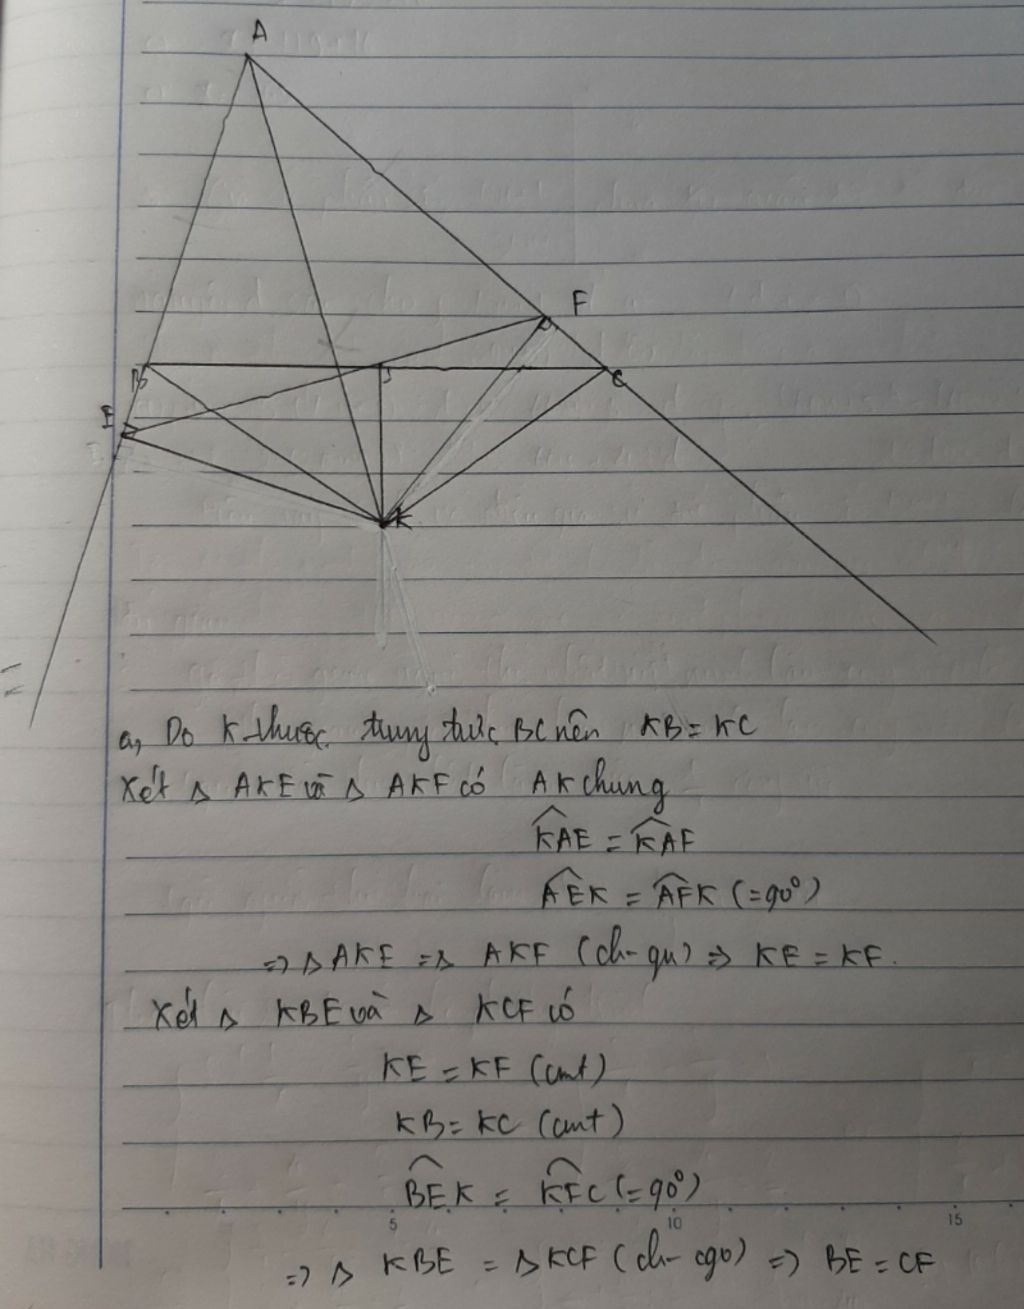 A
F
B
J
C
E
K
a, Do K thuộc trung trực BC nên KB = KC
Xét Δ AKE và Δ AKF có AK chung
\widehat{KAE} = \widehat{KAF}
\widehat{AEK} = \widehat{AFK} (=90°)
=> Δ AKE = Δ AKF (ch-gn) => KE = KF.
Xét Δ KBE và Δ KCF có
KE = KF (cmt)
KB = KC (cmt)
\widehat{BEK} = \widehat{KFC} (=90°)
5 10 15
=> Δ KBE = Δ KCF (ch-cgv) => BE = CF